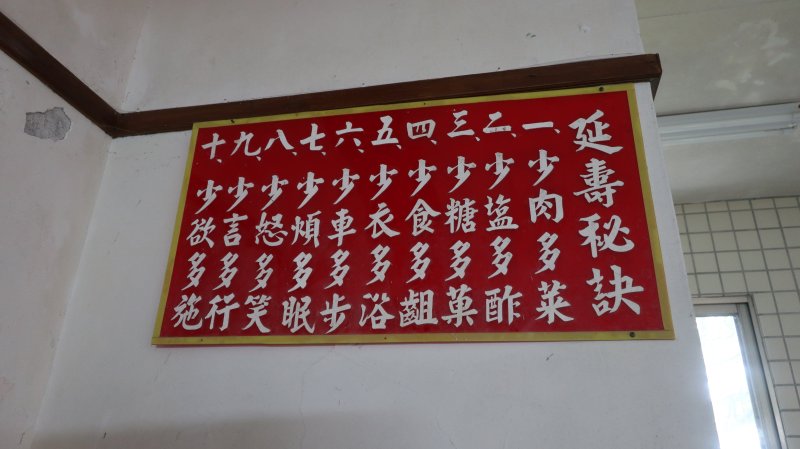 延壽秘訣
一、少肉多菜
二、少塩多酢
三、少糖多菓
四、少食多齟
五、少衣多浴
六、少車多步
七、少煩多眠
八、少怒多笑
九、少言多行
十、少欲多施